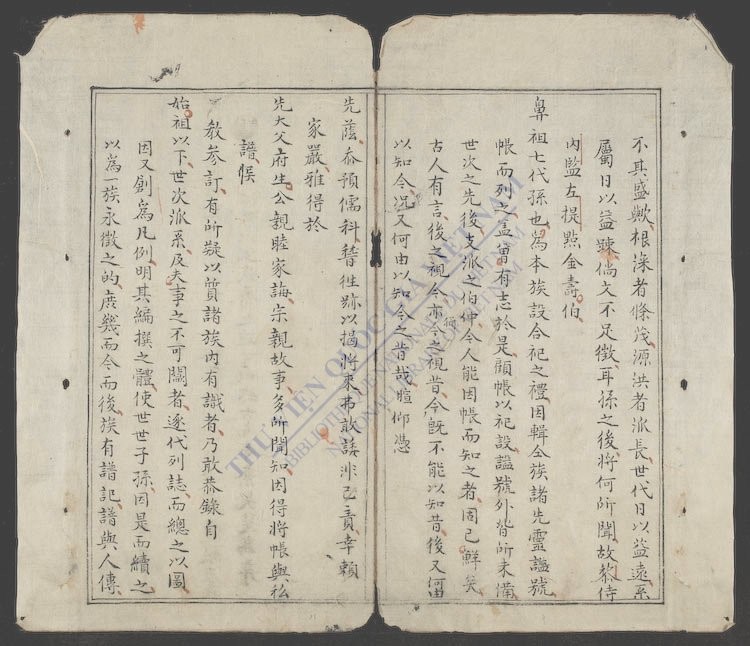 不其盛歟根深者條茂源洪者派長世代日以益遠系
屬日以益踈倘文不足徵耳孫之後將何所聞故黎侍
內監左提點金壽伯
鼻祖七代孫也為本族設合祀之禮因輯全族諸先靈謚號
帳而列之盖曾有志於是顧帳以祀設謚號外皆所未備
世次之先後支派之伯仲今人能因帳而知之者固已鮮矣
古人有言後之視今亦猶今之視昔今既不能以知昔後又何由
以知今況又何由以知今之昔哉暄仰憑
先蔭忝預儒科稽往跡以揭將來弗敢諉非己責幸賴
家嚴雅得於
先大父府生公親睦家誨宗親故事多所聞知因得將帳與私
譜候
教參訂有所疑以質諸族內有識者乃敢恭錄自
始祖以下世次派系及夫事之不可闕者逐代列誌而總之以圖
因又創為凡例明其編撰之體使世世子孫因是而續之
以為一族永徵之的庶幾而今而後族有譜記譜與人傳
THƯ VIỆN QUỐC GIA VIỆT NAM
BIBLIOTHÈQUE NATIONALE DU VIETNAM
NATIONAL LIBRARY OF VIETNAM